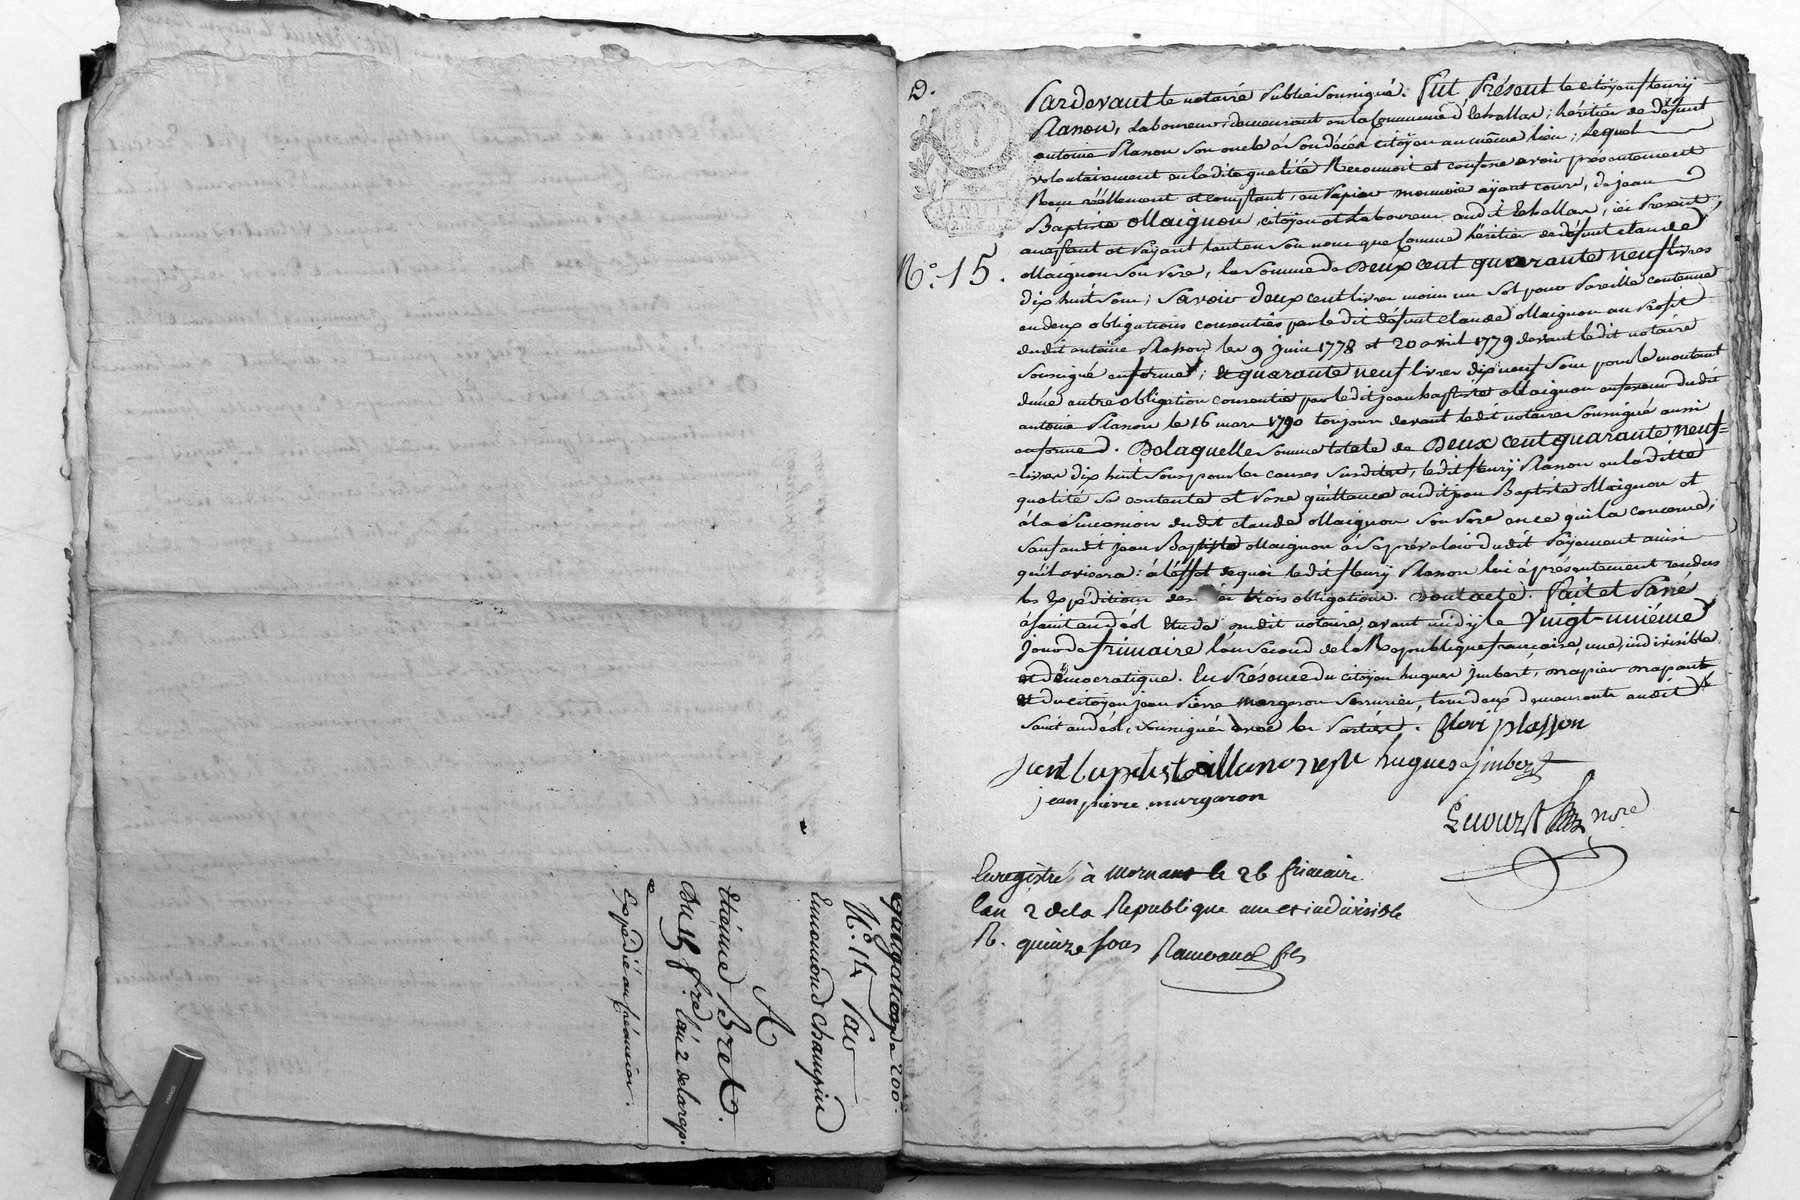 Quittance de 200.
N.º 14 Par
Ennemond Champin
A
Etienne Bret.
Du 15 fre. l'an 2 de la rep.
Expédié au créancier.
D.
Pardevant le notaire Public soussigné. Fut Présent le citoyen fleurÿ
Plasson, Laboureur, demeurant en la Commune d'Echallas; héritier de défunt
antoine Plasson son oncle à son décès citoyen au même lieu; Lequel
volontairement en la dite qualité Reconnoit et confesse avoir présentement
Reçu réellement et comptant, en Papier monnoie aÿant cours, de jean
Baptiste Maignon citoyen et Laboureur audit Echallas, ici Present
acceptant et Payant tant en son nom que comme héritier de défunt claude
N.º 15.
Maignon son Pere, la somme de Deux cent quarante neuf livres
dix huit sous; Savoir deux cent livres moins un sol pour Pareille contenue
en deux obligations consenties par le dit défunt claude Maignon au Profit
dudit antoine Plasson les 9 juin 1778 et 20 avril 1779 devant le dit notaire
soussigné en forme; et quarante neuf livres dix neuf sous pour le montant
d'une autre obligation consentie par le dit jean baptiste Maignon en faveur du dit
antoine Plasson le 16 mars 1790 toujours devant le dit notaire soussigné aussi
en forme. De laquelle somme totale de Deux cent quarante neuf
livres dix huit sous pour les causes susdites, le dit fleurÿ Plasson en la ditte
qualité se contente et Passe quittance audit jean Baptiste Maignon et
à la Succession dudit claude Maignon son Pere en ce qui la concerne;
sauf audit jean Baptiste Maignon à se prévaloir dudit Payement ainsi
qu'il avisera: à l'effet de quoi le dit fleurÿ Plasson lui à présentement rendus
les Expéditions des trois obligations. Dont acte. Fait et Passé
à saint andéol Etude dudit notaire, avant midÿ le Vingt-unième
jour de frimaire l'an second de la Republique francaise, une, indivisible
et démocratique. En Présence du citoyen hugues jmbert,
et du citoyen jean Pierre Margaron Serrurier, tous deux demeurants audit
Saint andéol, soussignés avec les Parties. fleuri plasson
jean baptiste Maignon hugues jmbert
jean pierre margaron
nore
Enregistré à Mornant le 26 frimaire
l'an 2 de la Republique une et indivisible
R. quinze sous